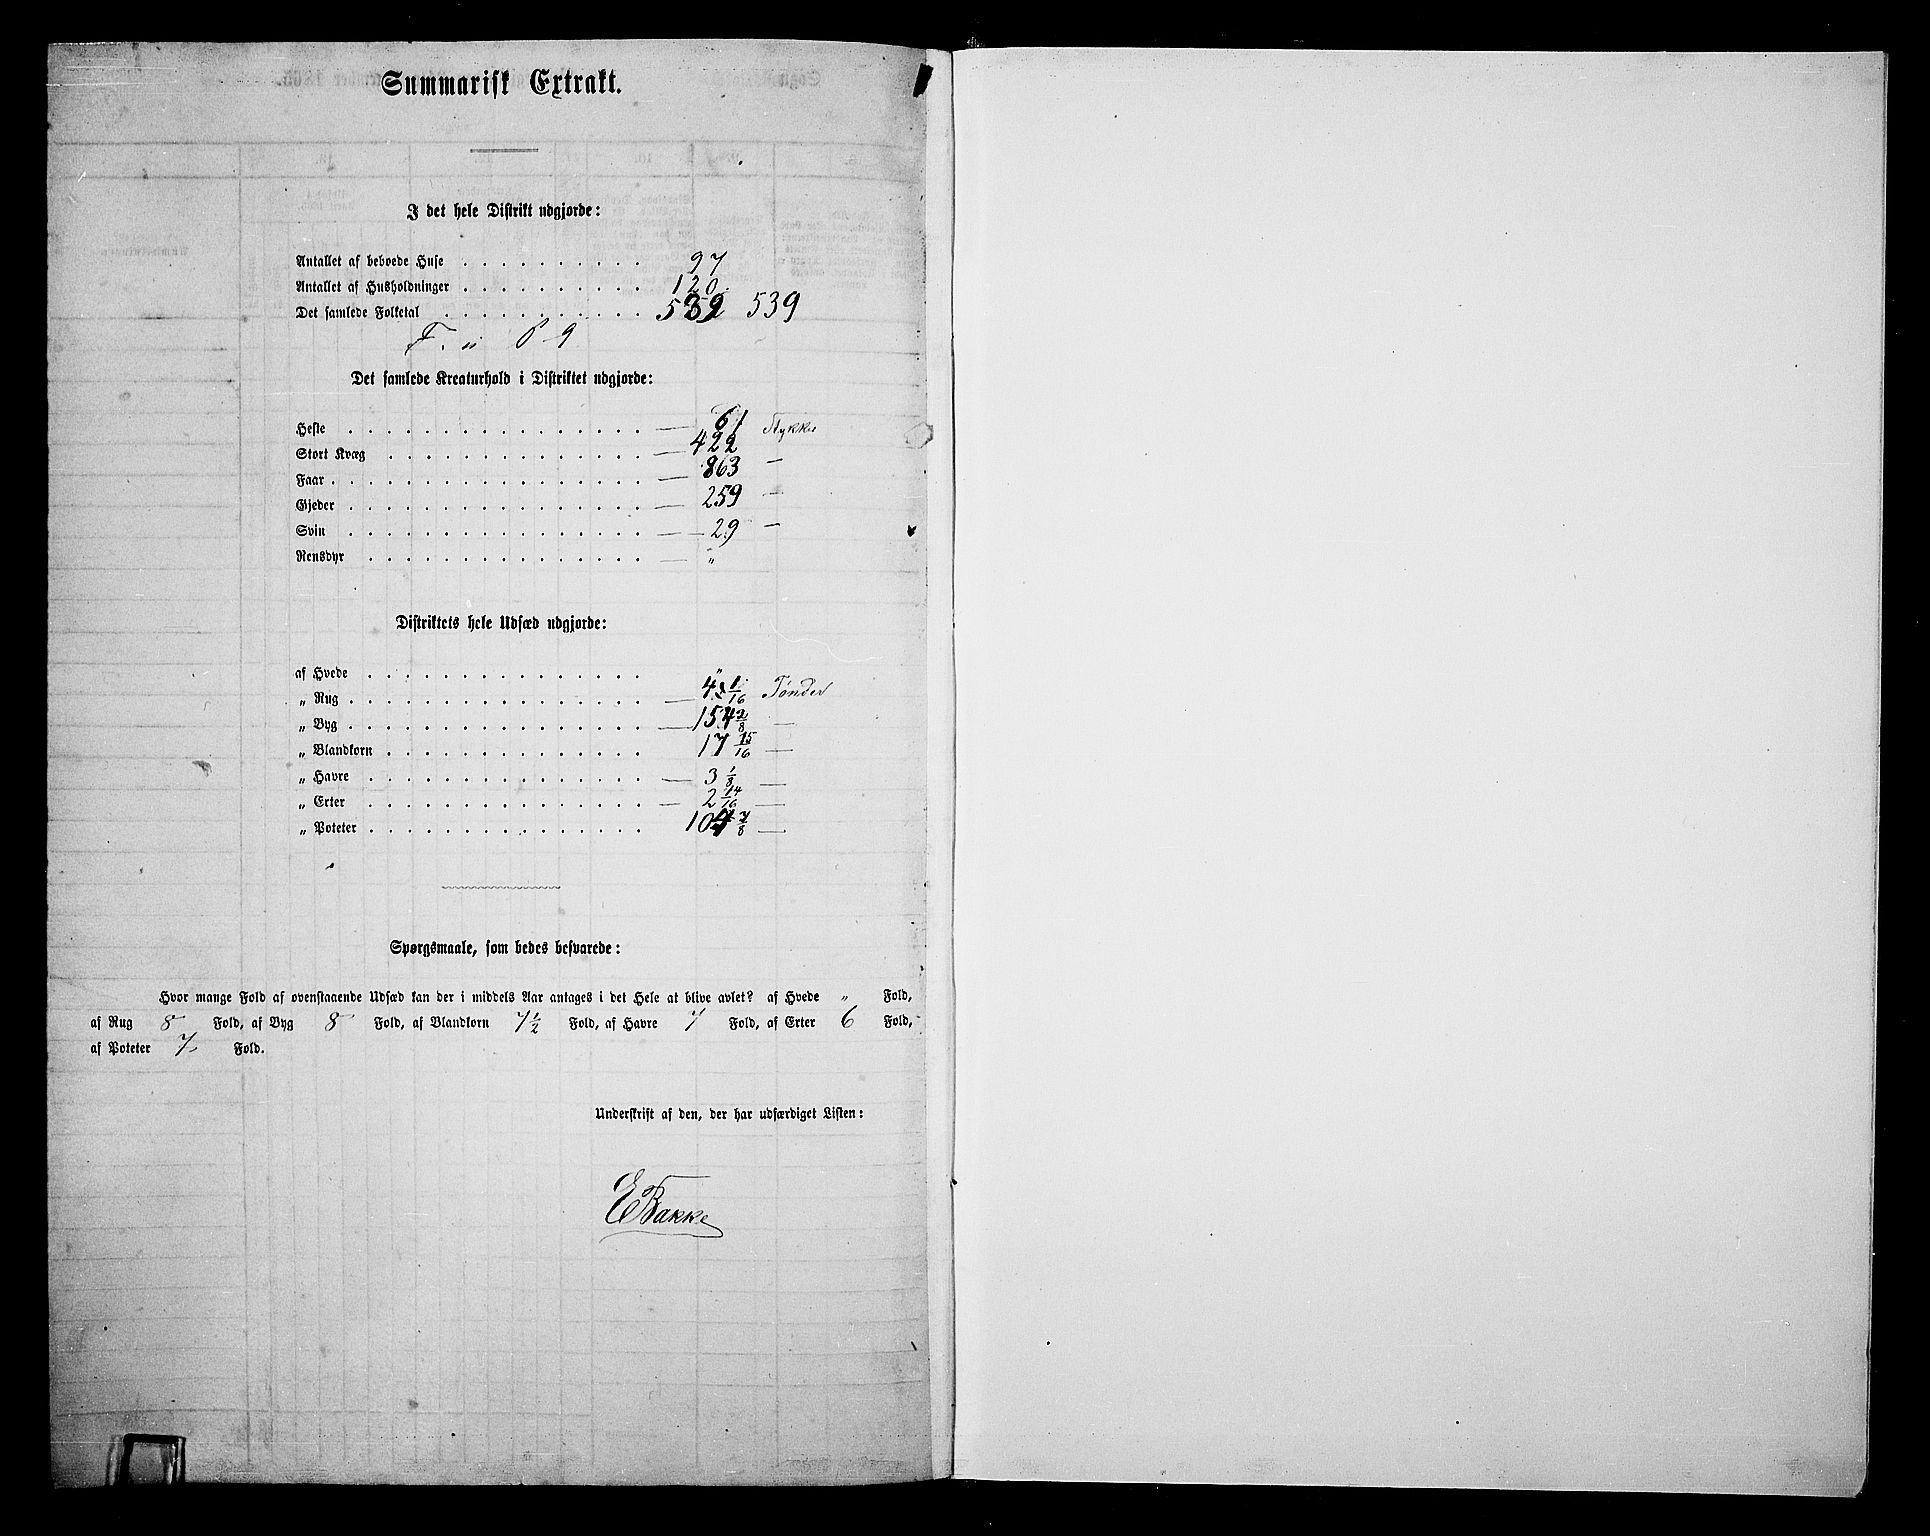 Summarisk Extrakt.
I det hele Distrikt udgjorde:
Antallet af beboede Huse . . . . . . . . . . 97
Antallet af Husholdninger . . . . . . . . . . 120
Det samlede Folketal . . . . . . . . . . . 539 539
F. „ P 9
Det samlede Kreaturhold i Distriktet udgjorde:
Heste . . . . . . . . . . . . . . . . — 61 Stykker
Stort Kvæg . . . . . . . . . . . . . . — 422
Faar . . . . . . . . . . . . . . . . . — 863 —
Gjeder . . . . . . . . . . . . . . . . — 259 —
Svin . . . . . . . . . . . . . . . . — 29 —
Rensdyr . . . . . . . . . . . . . . . — „
Distriktets hele Udsæd udgjorde:
af Hvede . . . . . . . . . . . . . . . „
„ Rug . . . . . . . . . . . . . . . . — 4 1/16 Tønder
„ Byg . . . . . . . . . . . . . . . . — 154 2/8 —
„ Blandkorn . . . . . . . . . . . . . . 17 15/16 —
„ Havre . . . . . . . . . . . . . . . — 3 1/8 —
„ Erter . . . . . . . . . . . . . . . — 2 14/16 —
„ Poteter . . . . . . . . . . . . . . . 104 7/8 —
Spørgsmaale, som bedes besvarede:
Hvor mange Fold af ovenstaaende Udsæd kan der i middels Aar antages i det Hele at blive avlet? af Hvede „ Fold,
af Rug 8 Fold, af Byg 8 Fold, af Blandkorn 7 1/2 Fold, af Havre 7 Fold, af Erter 6 Fold,
af Poteter 7 Fold.
Underskrift af den, der har udfærdiget Listen:
E Bakke